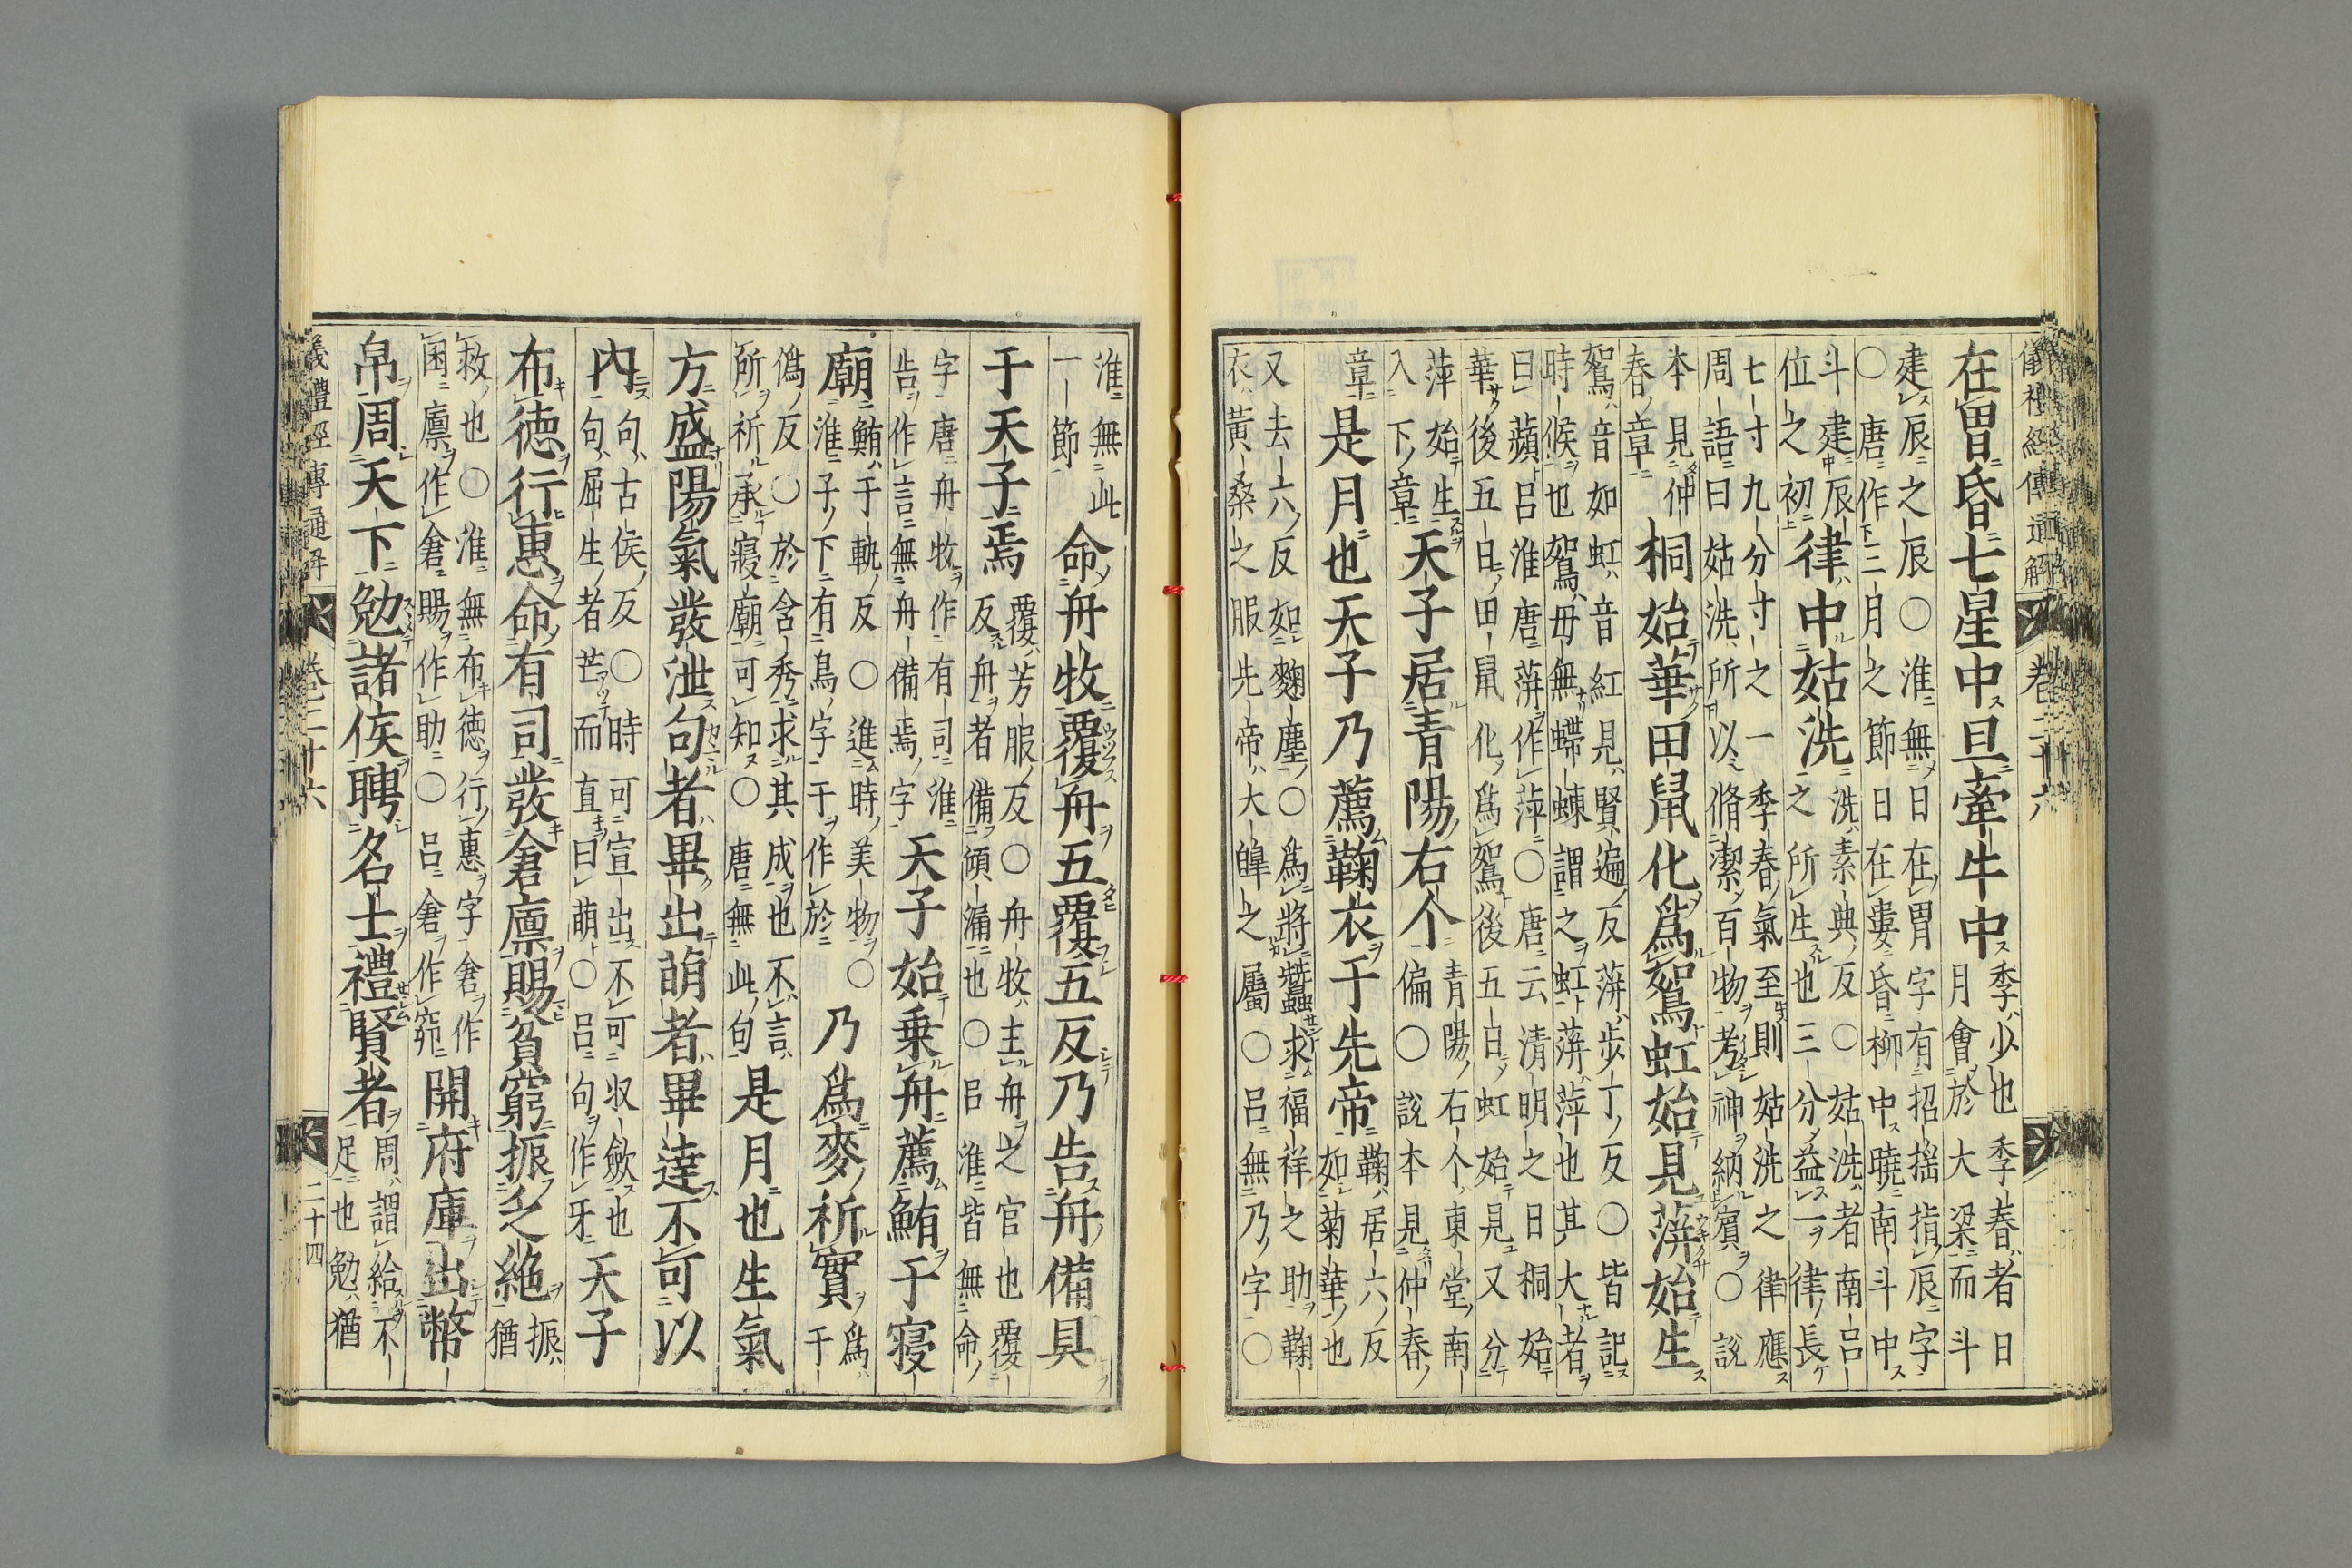 儀禮經傳通解 卷二十六
在胃昏七星中旦牽牛中
季少也季春者日
月會於大梁而斗
建辰之辰○淮無日在胃字有招揺指辰字
○唐作三月之節日在婁昏柳中曉南斗中
斗建辰
位之初
律中姑洗
洗素典反○姑洗者南呂
之所生也三分益一律長
七寸九分寸之一季春氣至則姑洗之律應
周語曰姑洗所以脩潔百物考神納賓○說
本見仲
春章
桐始華田鼠化爲鴽虹始見蓱始生
鴽音如虹音紅見賢遍反蓱歩丁反○皆記
時候也鴽毋無蝃蝀謂之虹蓱萍也其大者
曰蘋呂淮唐蓱作萍○唐云清明之日桐始
華後五日田鼠化爲鴽後五日虹始見又分
萍始生
入下章
天子居青陽右个
青陽右个東堂南
偏○說本見仲春
章
是月也天子乃薦鞠衣于先帝
鞠居六反
如菊華也
又去六反如麴塵○爲將蠶求福祥之助鞠
衣黃桑之服先帝大皥之屬○呂無乃字○
淮無此
一節
命舟牧覆舟五覆五反乃告舟備具
于天子焉
覆芳服反○舟牧主舟之官也覆
反舟者備傾漏也○呂淮皆無命
字唐舟牧作有司淮
告作言無舟備焉字
天子始乗舟薦鮪于寝
廟
鮪于軌反○進時美物○
淮子下有烏字于作於
乃爲麥祈實
爲
于
僞反○於含秀求其成也不言
所祈承寢廟可知○唐無此句
是月也生氣
方盛陽氣發泄句者畢出萌者畢達不可以
內
句古侯反○時可宣出不可収歛也
句屈生者芒而直曰萌○呂句作牙
天子
布徳行惠命有司發倉廩賜貧窮振乏絶
振
猶
救也○淮無布徳行惠字倉作
囷廩作倉賜作助○呂倉作窌
開府庫出幣
帛周天下勉諸侯聘名士禮賢者
周謂給不
足也勉猶
儀禮經傳通解 卷二十六 二十四